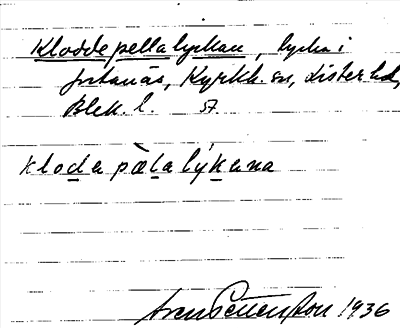 Kloddepellalyckan, lycka i
Jutanäs, Kyrkh. sn, Lister hd,
Blek. l. st.
kloda pàtalýkana
Pettersson 1936